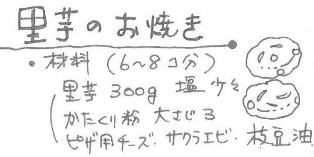 里芋のお焼き
・材料(6〜8コ分)
里芋 300g 塩 少々
かたくり粉 大さじ3
ピザ用チーズ・サクラエビ・枝豆油